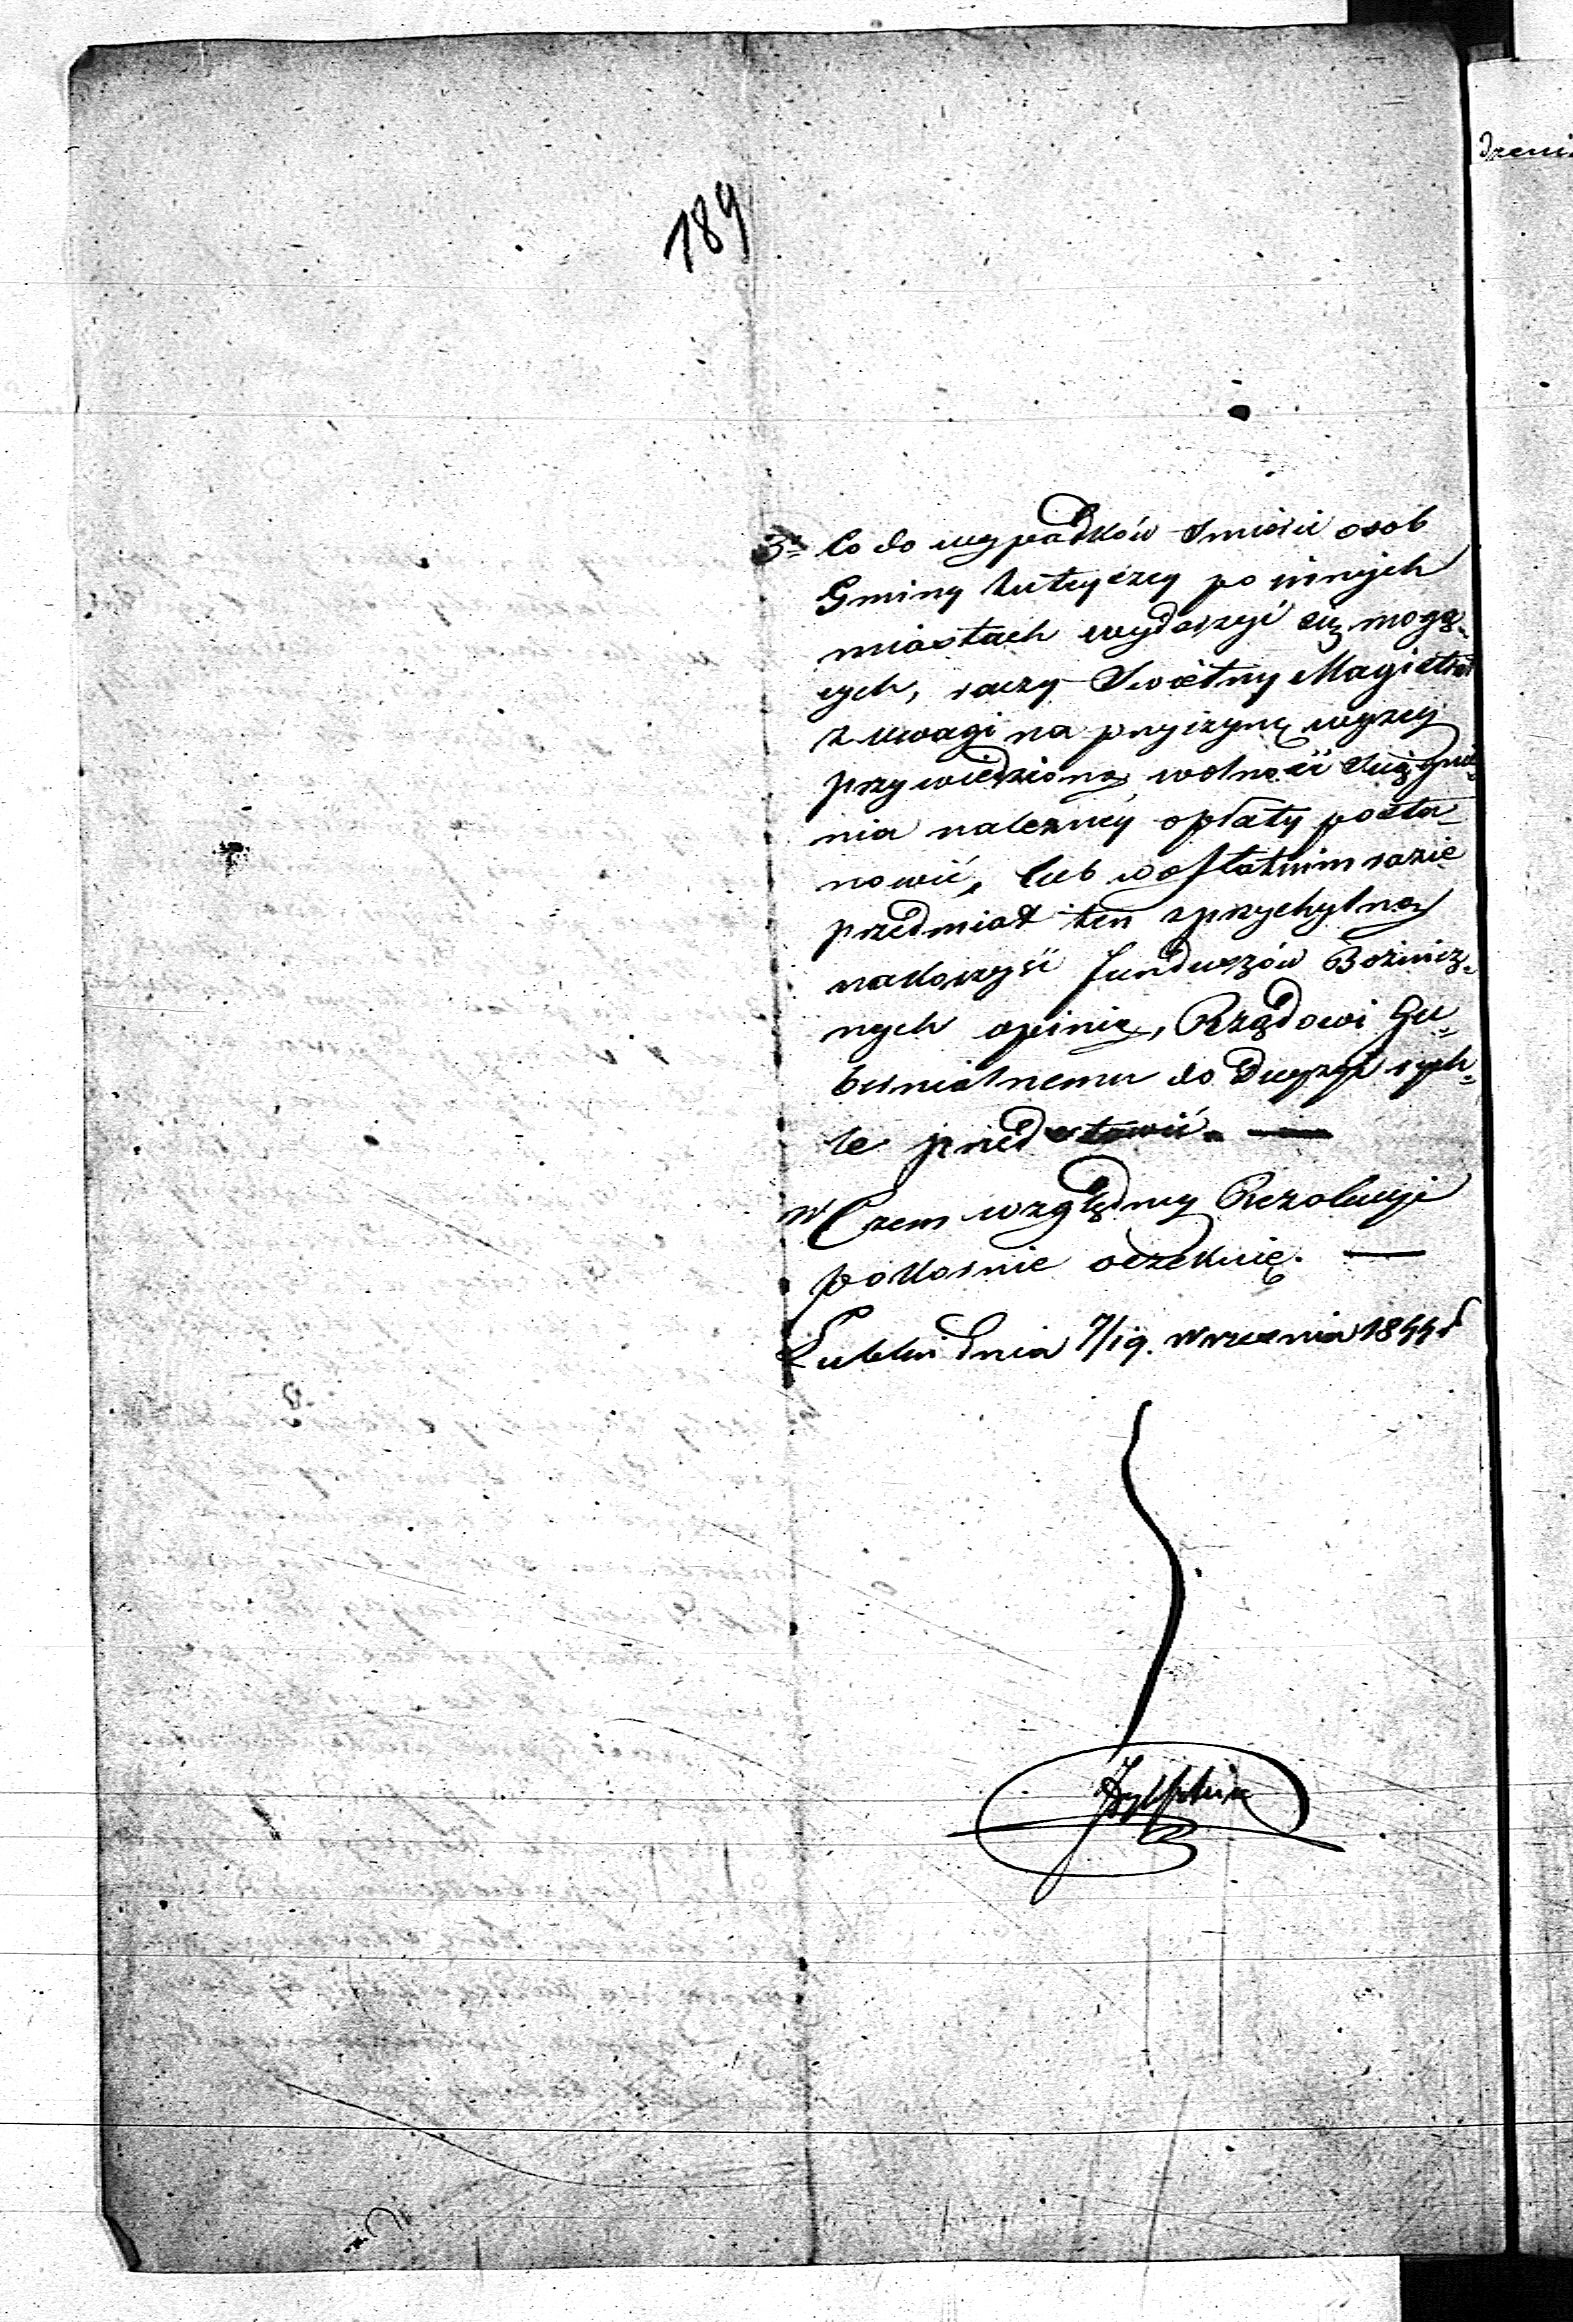 189
3º Co do wypadków Smierci osob
Gminy tuteyszey po innych
miastach wydarzyć się mogą-
cych, raczy Swietny Magistrat
z uwagi na przyczynę wyzey
przywiedzioną, wolność
nia należney opłaty posta-
nowić, lub w ostatnim razie
przedmiot ten z przychylną
na korzyść funduszów Bożnicz-
nych opinią, Rządowi Gu-
bernialnemu do Decyzyi rych-
le przedstawić. —
W Czem względney Rezolucyi
pokornie oczekuię. —
Lublin dnia 7/19. Września 1844 r